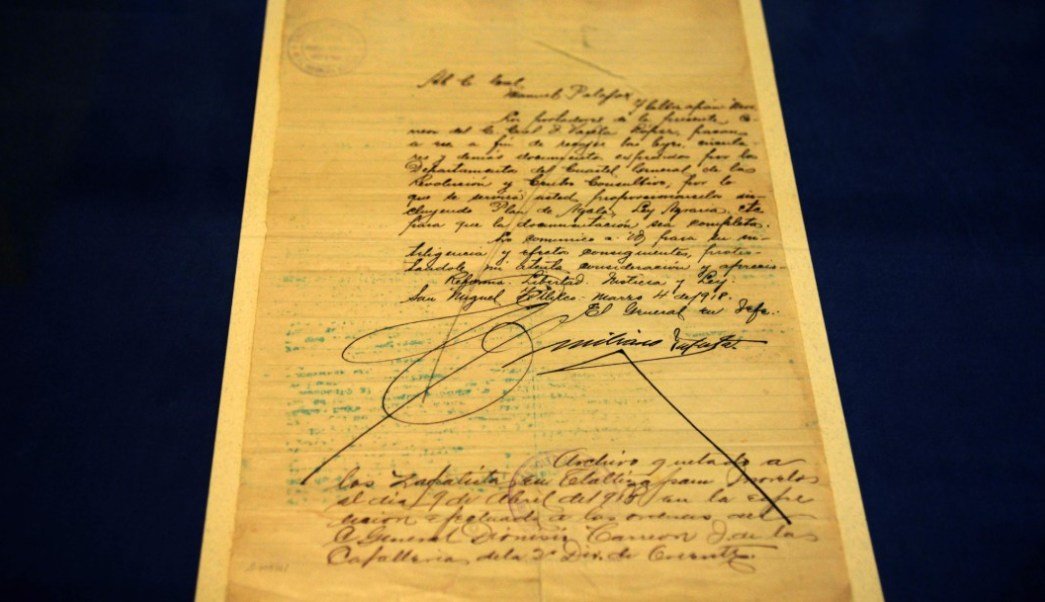 Al C. Gral.
Manuel Palafox
Los portadores de la presente,
del C. Gral. pasan
a ese a fin de recojer las leyes,
y demás documentos expedidos por los
Departamentos del Cuartel General de la
Revolución y Centro Consultivo, por lo
que se servirá usted proporcionarselos in-
cluyendo Plan de Ayala, Ley Agraria, etc
para que la documentación sea completa.
Lo comunico a Ud para su in-
teligencia y efectos consiguientes, protes-
tandole mi atenta consideración y aprecio.
Reforma, Libertad, Justicia y Ley.
San Miguel Marzo 4 de 1918.
El General en Jefe.
Emiliano Zapata.
Archivo quitado a
los Zapatistas en Morelos
el día 9 de Abril del 918 en la
efectuada a las ordenes del
C General Dionisio Carreon J. de las
Caballerias de la 2a Div. de Oriente.